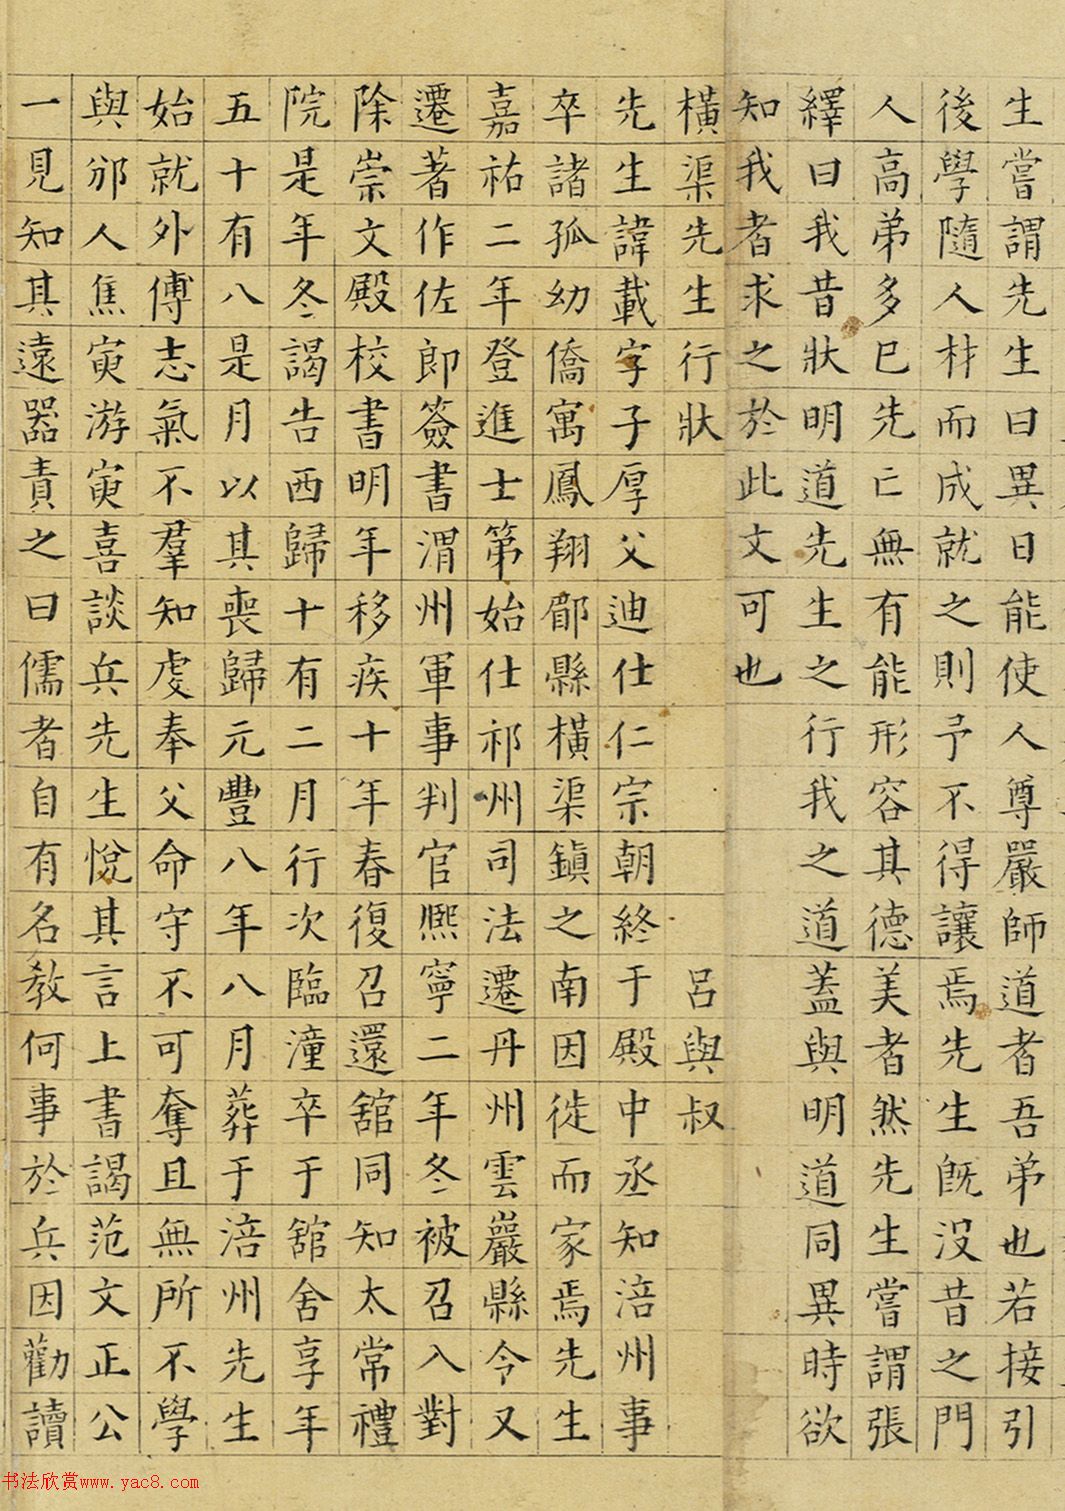 生嘗謂先生曰異日能使人尊嚴師道者吾弟也若接引
後學隨人材而成就之則予不得讓焉先生既沒昔之門
人高弟多已先亡無有能形容其德美者然先生嘗謂張
繹曰我昔狀明道先生之行我之道蓋與明道同異時欲
知我者求之於此文可也
橫渠先生行狀 呂與叔
先生諱載字子厚父迪仕仁宗朝終于殿中丞知涪州事
卒諸孤幼僑寓鳳翔郿縣橫渠鎮之南因徙而家焉先生
嘉祐二年登進士第始仕祁州司法遷丹州雲巖縣令又
遷著作佐郎簽書渭州軍事判官熈寧二年冬被召入對
除崇文殿校書明年移疾十年春復召還舘同知太常禮
院是年冬謁告西歸十有二月行次臨潼卒于舘舍享年
五十有八是月以其喪歸元豐八年八月葬于涪州先生
始就外傅志氣不羣知虔奉父命守不可奪且無所不學
與邠人焦寅游寅喜談兵先生悅其言上書謁范文正公
一見知其遠器責之曰儒者自有名教何事於兵因勸讀
书法欣赏www.yac8.com